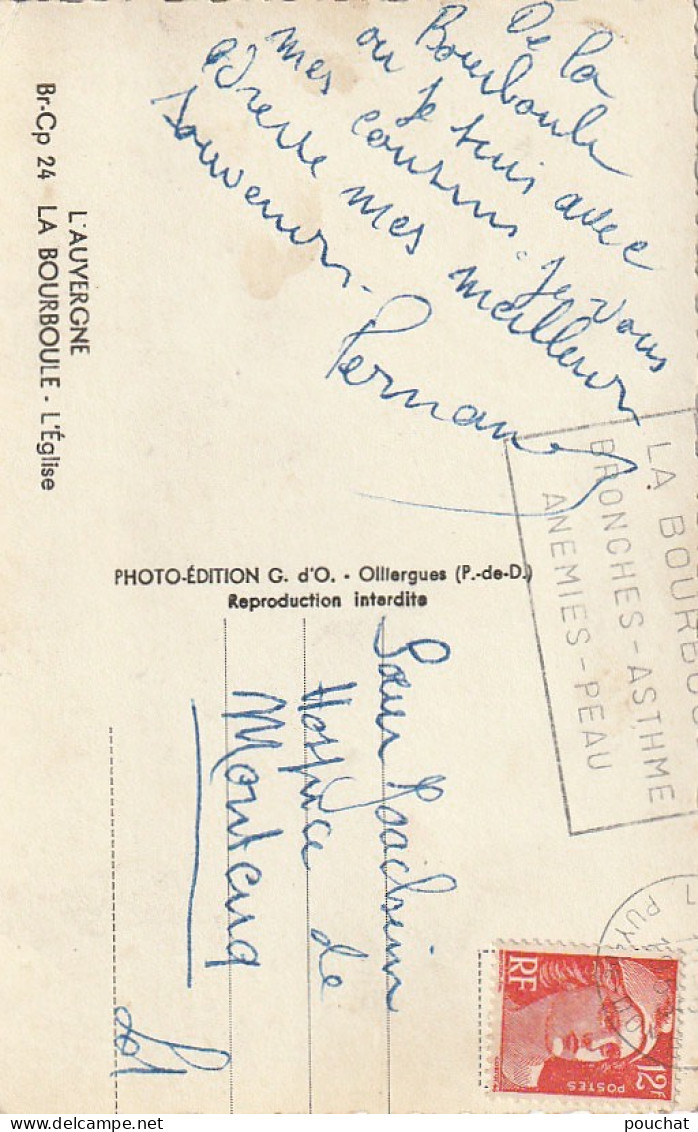 De la
Bourboule
ou je suis avec
mes cousins. je vous
adresse mes meilleurs
souvenirs.
Fernand
L'AUVERGNE
Br-Cp 24 LA BOURBOULE - L'Église
PHOTO-ÉDITION G. d'O. - Olliergues (P.-de-D.)
Reproduction interdite
LA BOURBOU
BRONCHES-ASTHME
ANEMIES-PEAU
PUY
DOM
RF
POSTES
12F
Sœur Joachim
Hospice de
Montcuq
Lot
pouchat